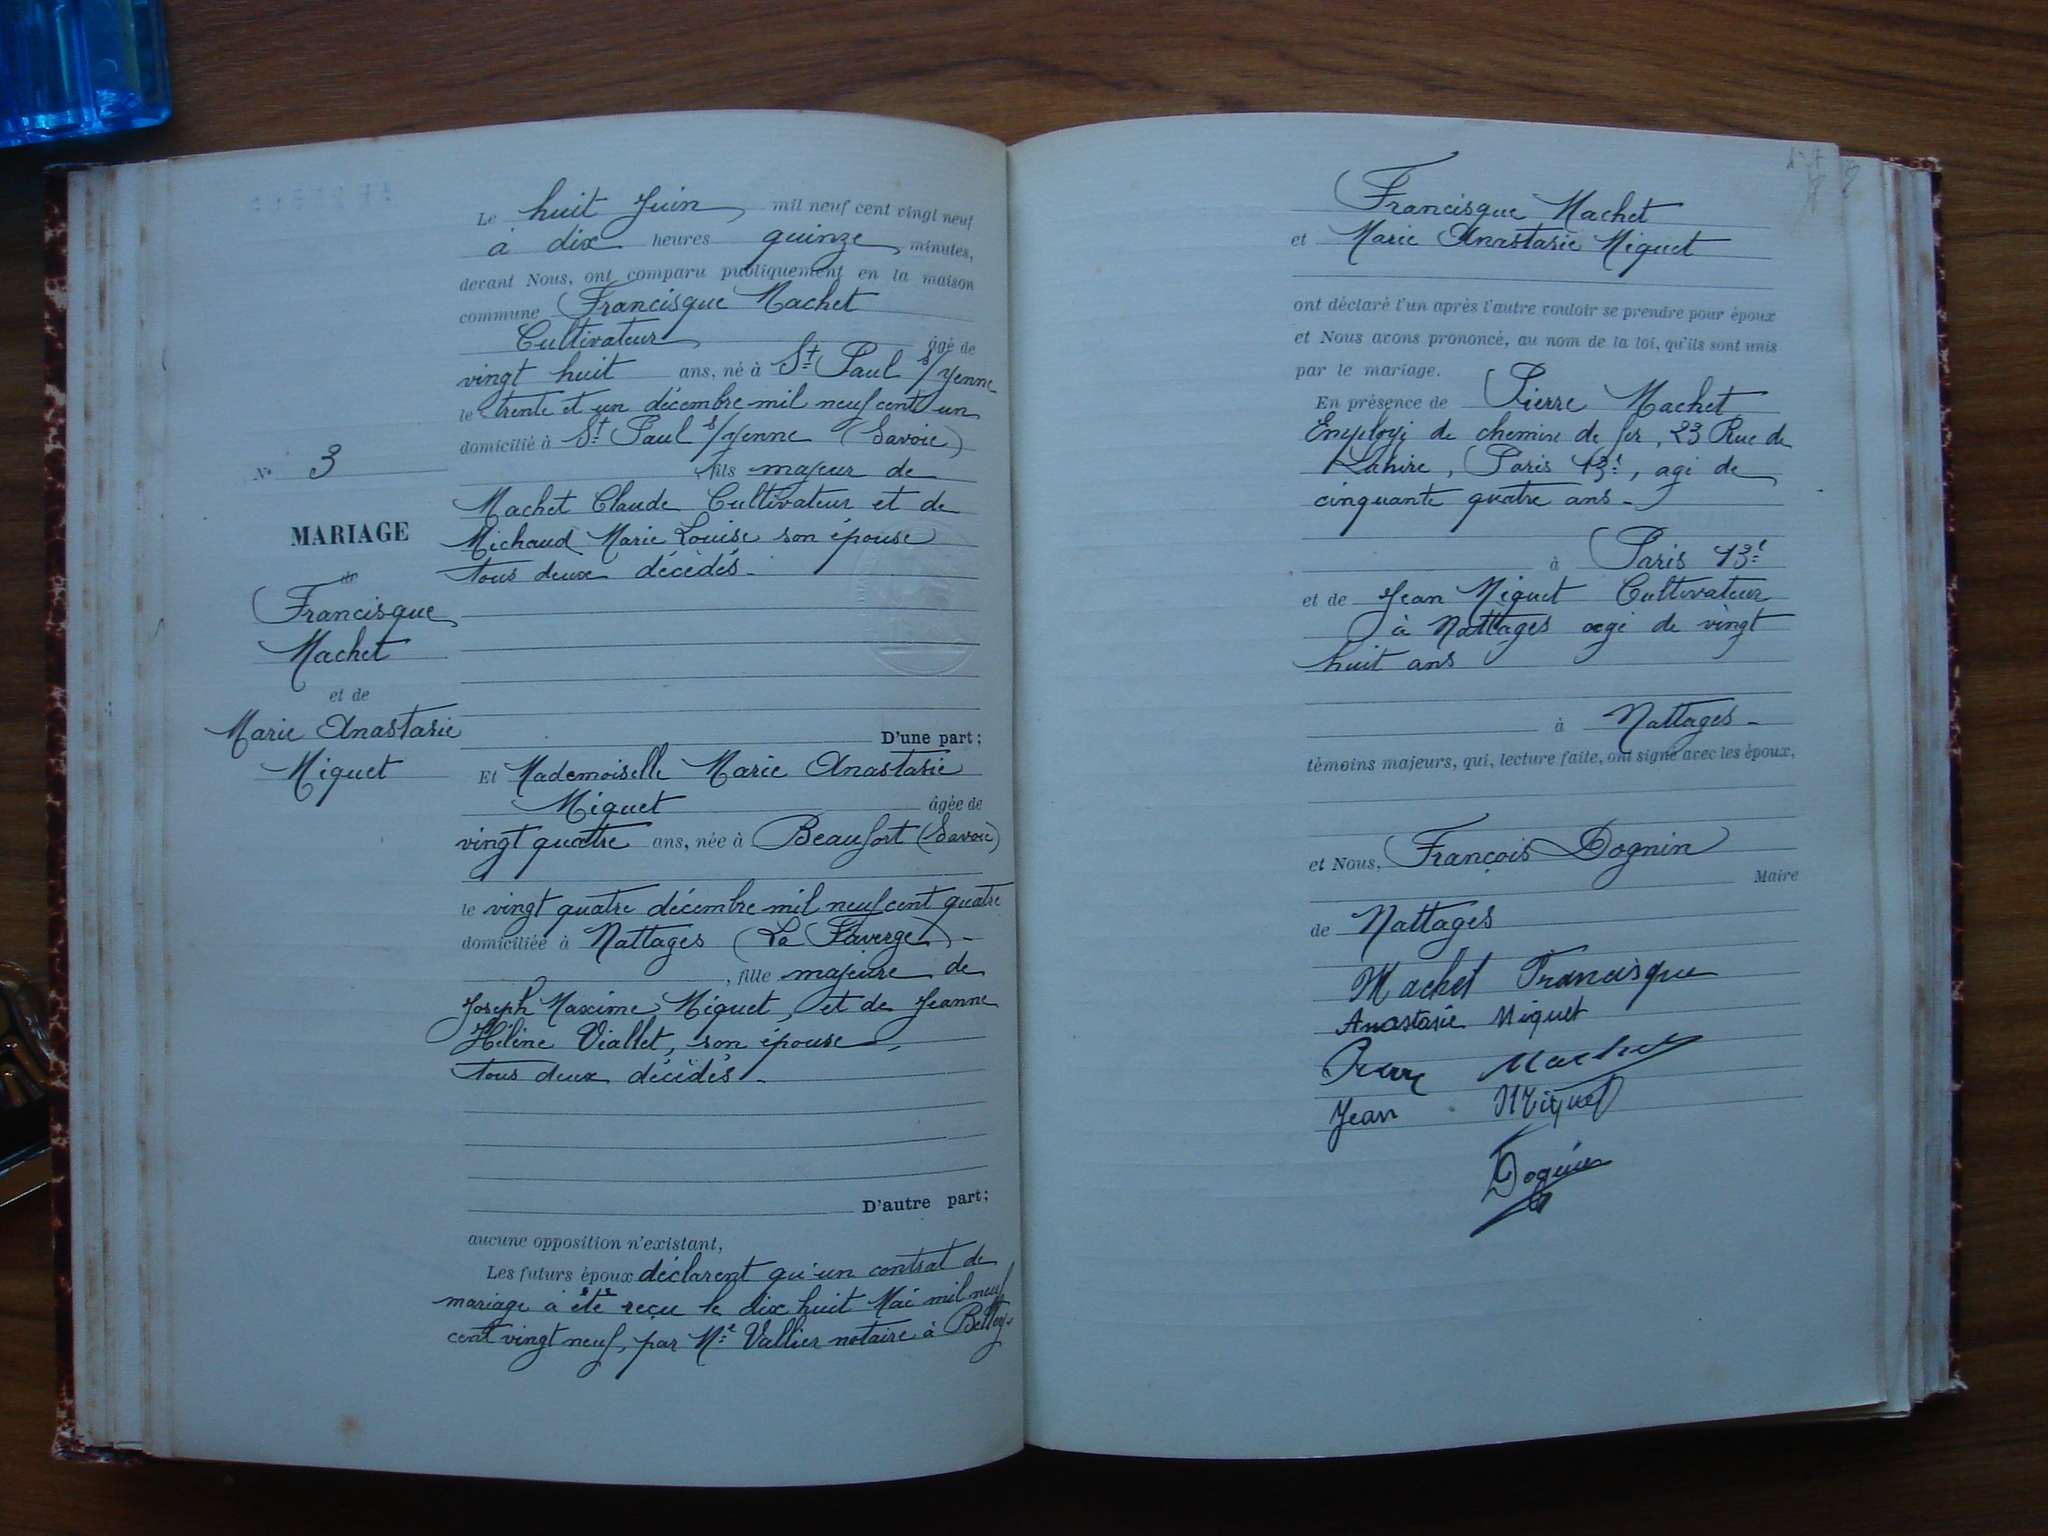 Le huit Juin mil neuf cent vingt neuf
à dix heures quinze minutes,
devant Nous, ont comparu publiquement en la maison
commune Francisque Machet
Cultivateur âgé de
vingt huit ans, né à St Paul s/Yenne
le trente et un décembre mil neuf cent un
domicilié à St Paul s/Yenne (Savoie)
fils majeur de
Machet Claude Cultivateur et de
Michaud Marie Louise son épouse
tous deux décédés.
No 3
MARIAGE
de
Francisque
Machet
et de
Marie Anastasie
Miguet
D'une part;
Et Mademoiselle Marie Anastasie
Miguet âgée de
vingt quatre ans, née à Beaufort (Savoie)
le vingt quatre décembre mil neuf cent quatre
domiciliée à Nattages (La Faverge)
, fille majeure de
Joseph Maxime Miguet, et de Jeanne
Hélène Viallet, son épouse,
tous deux décédés.
D'autre part;
aucune opposition n'existant,
Les futurs époux déclarent qu'un contrat de
mariage a été reçu le dix huit Mai mil neuf
cent vingt neuf, par Me Vallier notaire à Belley.
Francisque Machet
et Marie Anastasie Miguet
ont déclaré l'un après l'autre vouloir se prendre pour époux
et Nous avons prononcé, au nom de la loi, qu'ils sont unis
par le mariage.
En présence de Pierre Machet
Employé de chemin de fer, 23 Rue de
Lahire, Paris 13e, agé de
cinquante quatre ans
à Paris 13e
et de Jean Miguet Cultivateur
à Nattages agé de vingt
huit ans
à Nattages
témoins majeurs, qui, lecture faite, ont signé avec les époux,
et Nous, François Dognin
Maire
de Nattages
Machet Francisque
Anastasie Miguet
Pierre Machet
Jean Miguet
Dognin